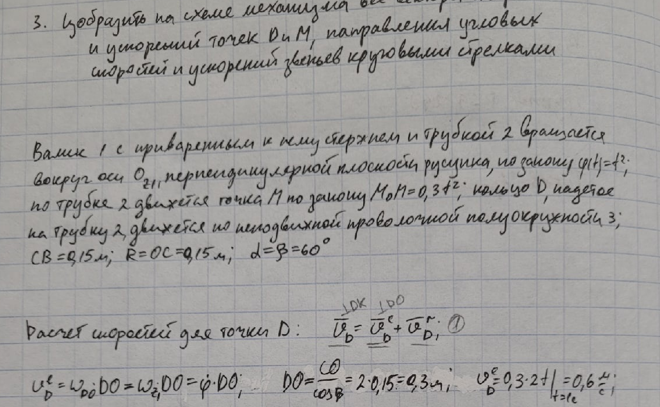 3. Изобразить на схеме механизма все
и ускорений точек D и M, направления угловых
скоростей и ускорений звеньев круговыми стрелками
Валик 1 с приваренным к нему стержнем и трубкой 2 вращается
вокруг оси O_{z1}, перпендикулярной плоскости русунка, по закону φ(t)=t²;
по трубке 2 движется точка M по закону M₀M=0,3t²; кольцо D, надетое
на трубку 2, движется по неподвижной проволочной полуокружности 3;
CB=0,15м; R=OC=0,15м; α=β=60°
⊥DK ⊥DO
Расчет скоростей для точки D: v̄_D = v̄_D^e + v̄_D^r; ①
v_D^e = ω_{DO}·DO = ω_{z1}·DO = φ̇·DO; DO = CO/cosβ = 2·0,15 = 0,3м; v_D^e = 0,3·2t|_{t=1c} = 0,6 м/с;